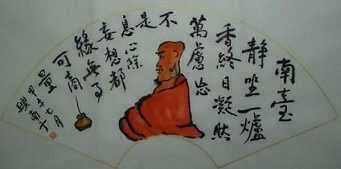 南臺
靜坐一爐
香終日凝然
萬慮忘
不
是
息心除
妄想都
緣無事
可商
量
甲午七月